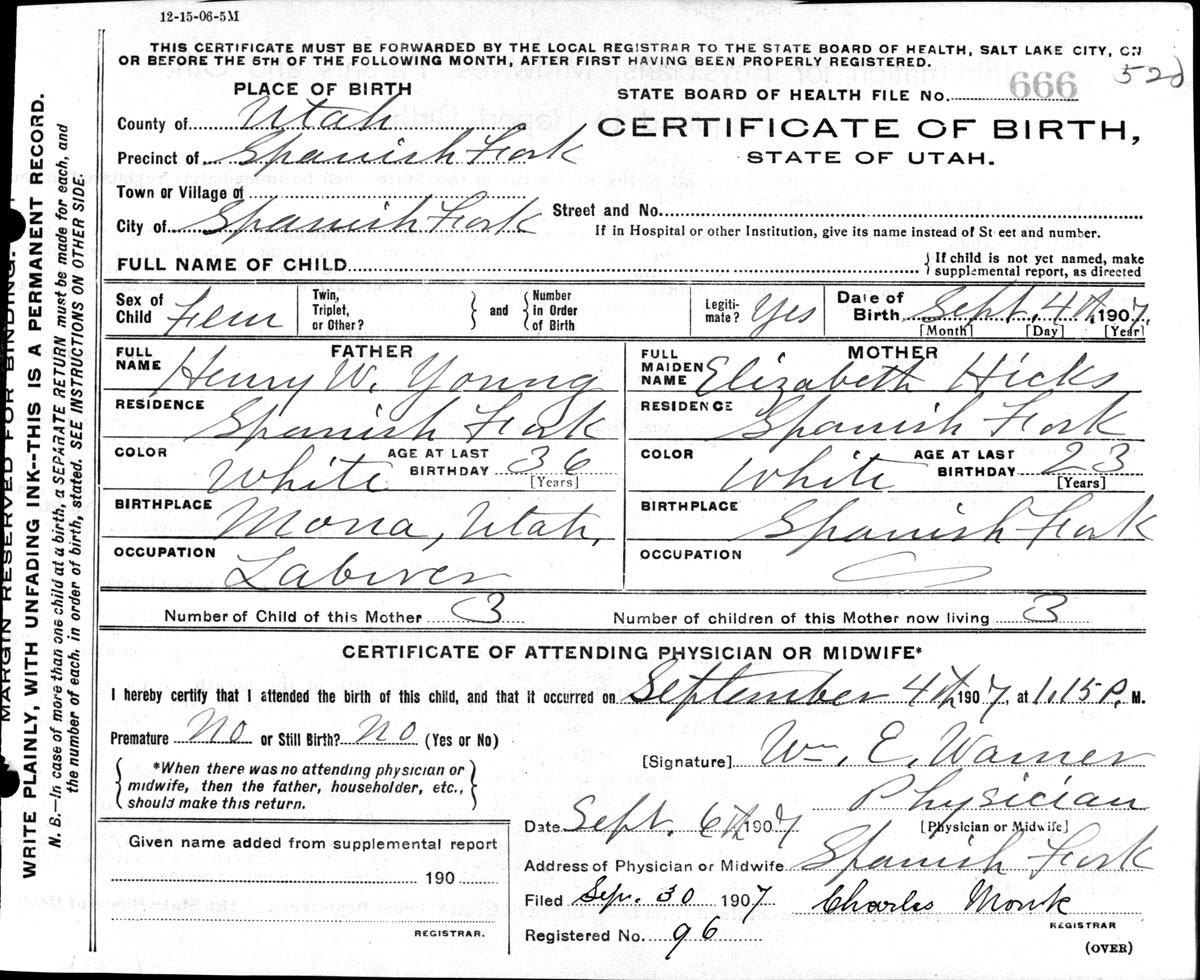 12-15-06-5M
THIS CERTIFICATE MUST BE FORWARDED BY THE LOCAL REGISTRAR TO THE STATE BOARD OF HEALTH, SALT LAKE CITY, ON
OR BEFORE THE 5TH OF THE FOLLOWING MONTH, AFTER FIRST HAVING BEEN PROPERLY REGISTERED.
520
PLACE OF BIRTH
STATE BOARD OF HEALTH FILE No. 666
County of Utah
CERTIFICATE OF BIRTH,
Precinct of Spanish Fork
STATE OF UTAH.
Town or Village of
City of Spanish Fork
Street and No.
If in Hospital or other Institution, give its name instead of Street and number.
FULL NAME OF CHILD
If child is not yet named, make
supplemental report, as directed
Sex of
Child Fem
Twin,
Triplet,
or Other?
and
Number
in Order
of Birth
Legiti-
mate? Yes
Date of
Birth Sept. 4th, 1907.
[Month] [Day] [Year]
FATHER
FULL
NAME Henry W. Young
RESIDENCE
Spanish Fork
COLOR White
AGE AT LAST
BIRTHDAY 36
[Years]
BIRTHPLACE
Mona, Utah,
OCCUPATION
Laborer
MOTHER
FULL
MAIDEN
NAME Elizabeth Hicks
RESIDENCE
Spanish Fork
COLOR White
AGE AT LAST
BIRTHDAY 23
[Years]
BIRTHPLACE
Spanish Fork
OCCUPATION
Number of Child of this Mother 3
Number of children of this Mother now living 3
CERTIFICATE OF ATTENDING PHYSICIAN OR MIDWIFE*
I hereby certify that I attended the birth of this child, and that it occurred on September 4th, 1907, at 1.15 P. M.
Premature No or Still Birth? No (Yes or No)
*When there was no attending physician or
midwife, then the father, householder, etc.,
should make this return.
[Signature] Wm. E. Warner
Physician
[Physician or Midwife]
Date Sept. 6th 1907
Address of Physician or Midwife Spanish Fork
Given name added from supplemental report
190
REGISTRAR.
Filed Sep. 30 1907
Charles Monk
REGISTRAR
Registered No. 96
(OVER)
MARGIN RESERVED FOR BINDING.
WRITE PLAINLY, WITH UNFADING INK--THIS IS A PERMANENT RECORD.
N. B.—In case of more than one child at a birth, a SEPARATE RETURN must be made for each, and
the number of each, in order of birth, stated. SEE INSTRUCTIONS ON OTHER SIDE.